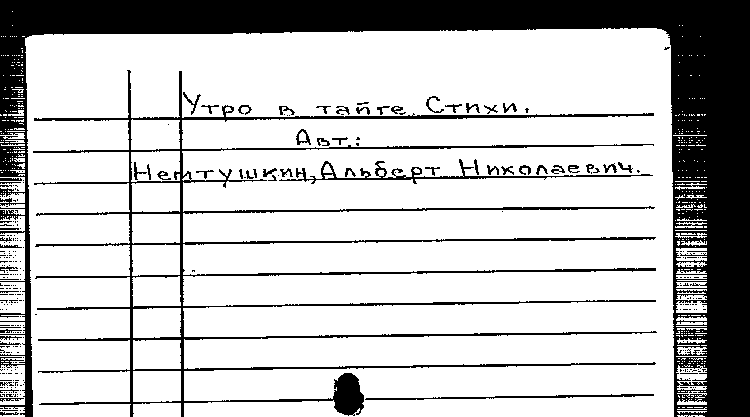 Утро в тайге Стихи.
Авт.:
Немтушкин, Альберт Николаевич.